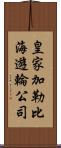 皇家加勒比
海遊輪公司